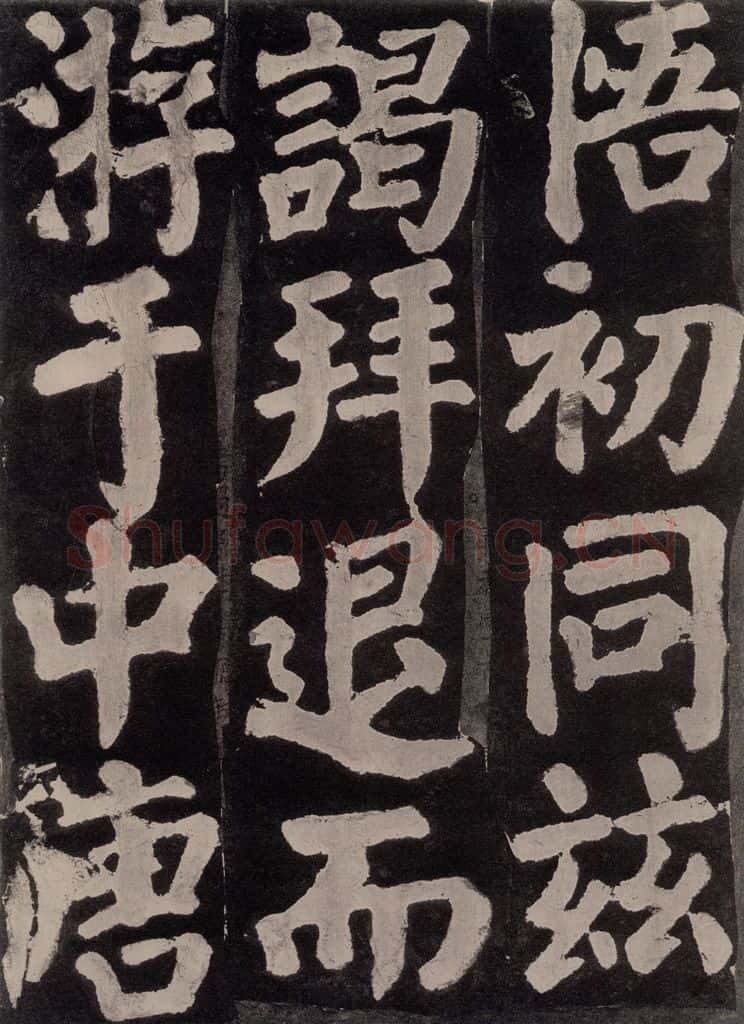 悟初同兹
謁拜退而
游于中唐
Shufawang.CN